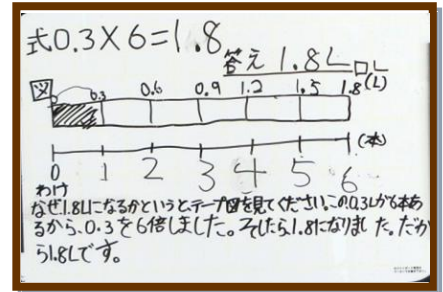 式0.3×6=1.8
答え 1.8L
□L
図
0 0.3 0.6 0.9 1.2 1.5 1.8 (L)
(本)
0 1 2 3 4 5 6
わけ
なぜ1.8Lになるかというと、テープ図を見てください。この0.3Lが6本あ
るから、0.3を6倍しました。そしたら1.8になりました。だか
ら1.8Lです。